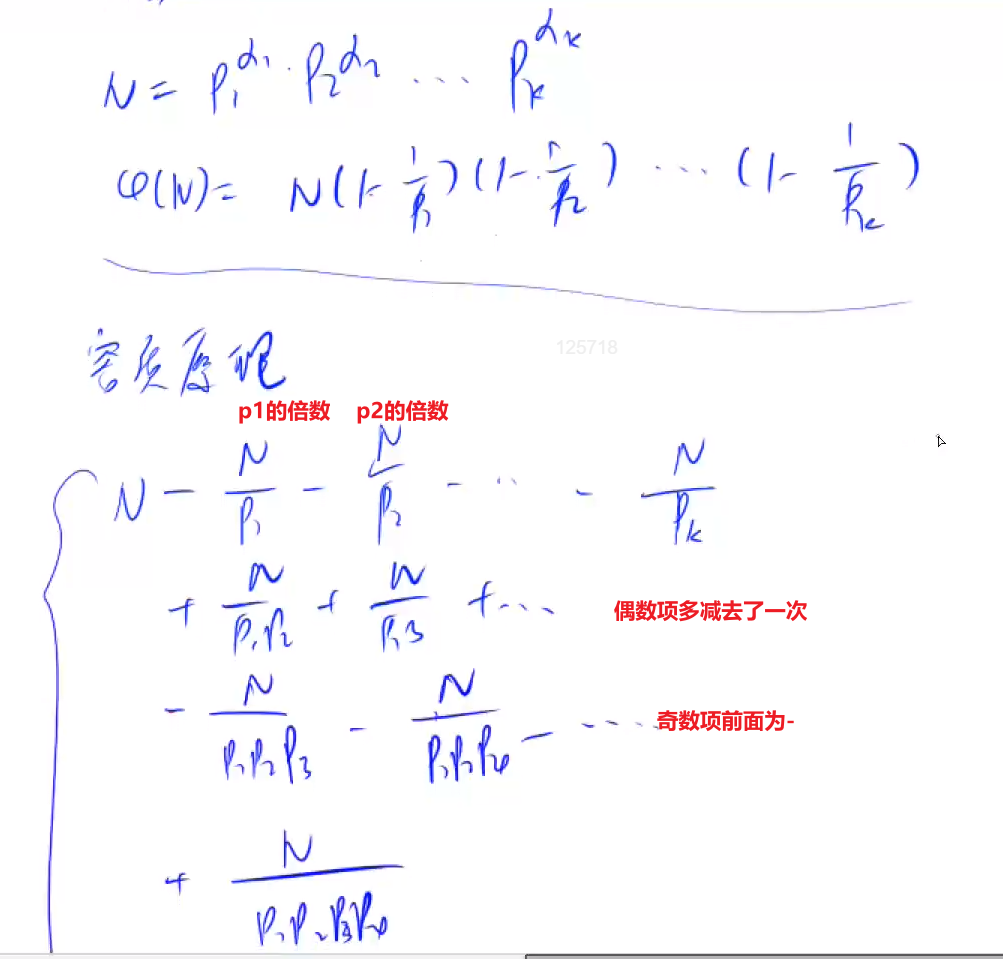 N = P₁^α₁ · P₂^α₂ ... Pₖ^αₖ
φ(N) = N(1-1/P₁)(1-1/P₂) ... (1-1/Pₖ)
125718
容斥原理
p1的倍数 p2的倍数
N - N/P₁ - N/P₂ - ... - N/Pₖ
+ N/P₁P₂ + N/P₁P₃ + ... 偶数项多减去了一次
- N/P₁P₂P₃ - N/P₁P₂P₄ - ... 奇数项前面为-
+ N/P₁P₂P₃P₄